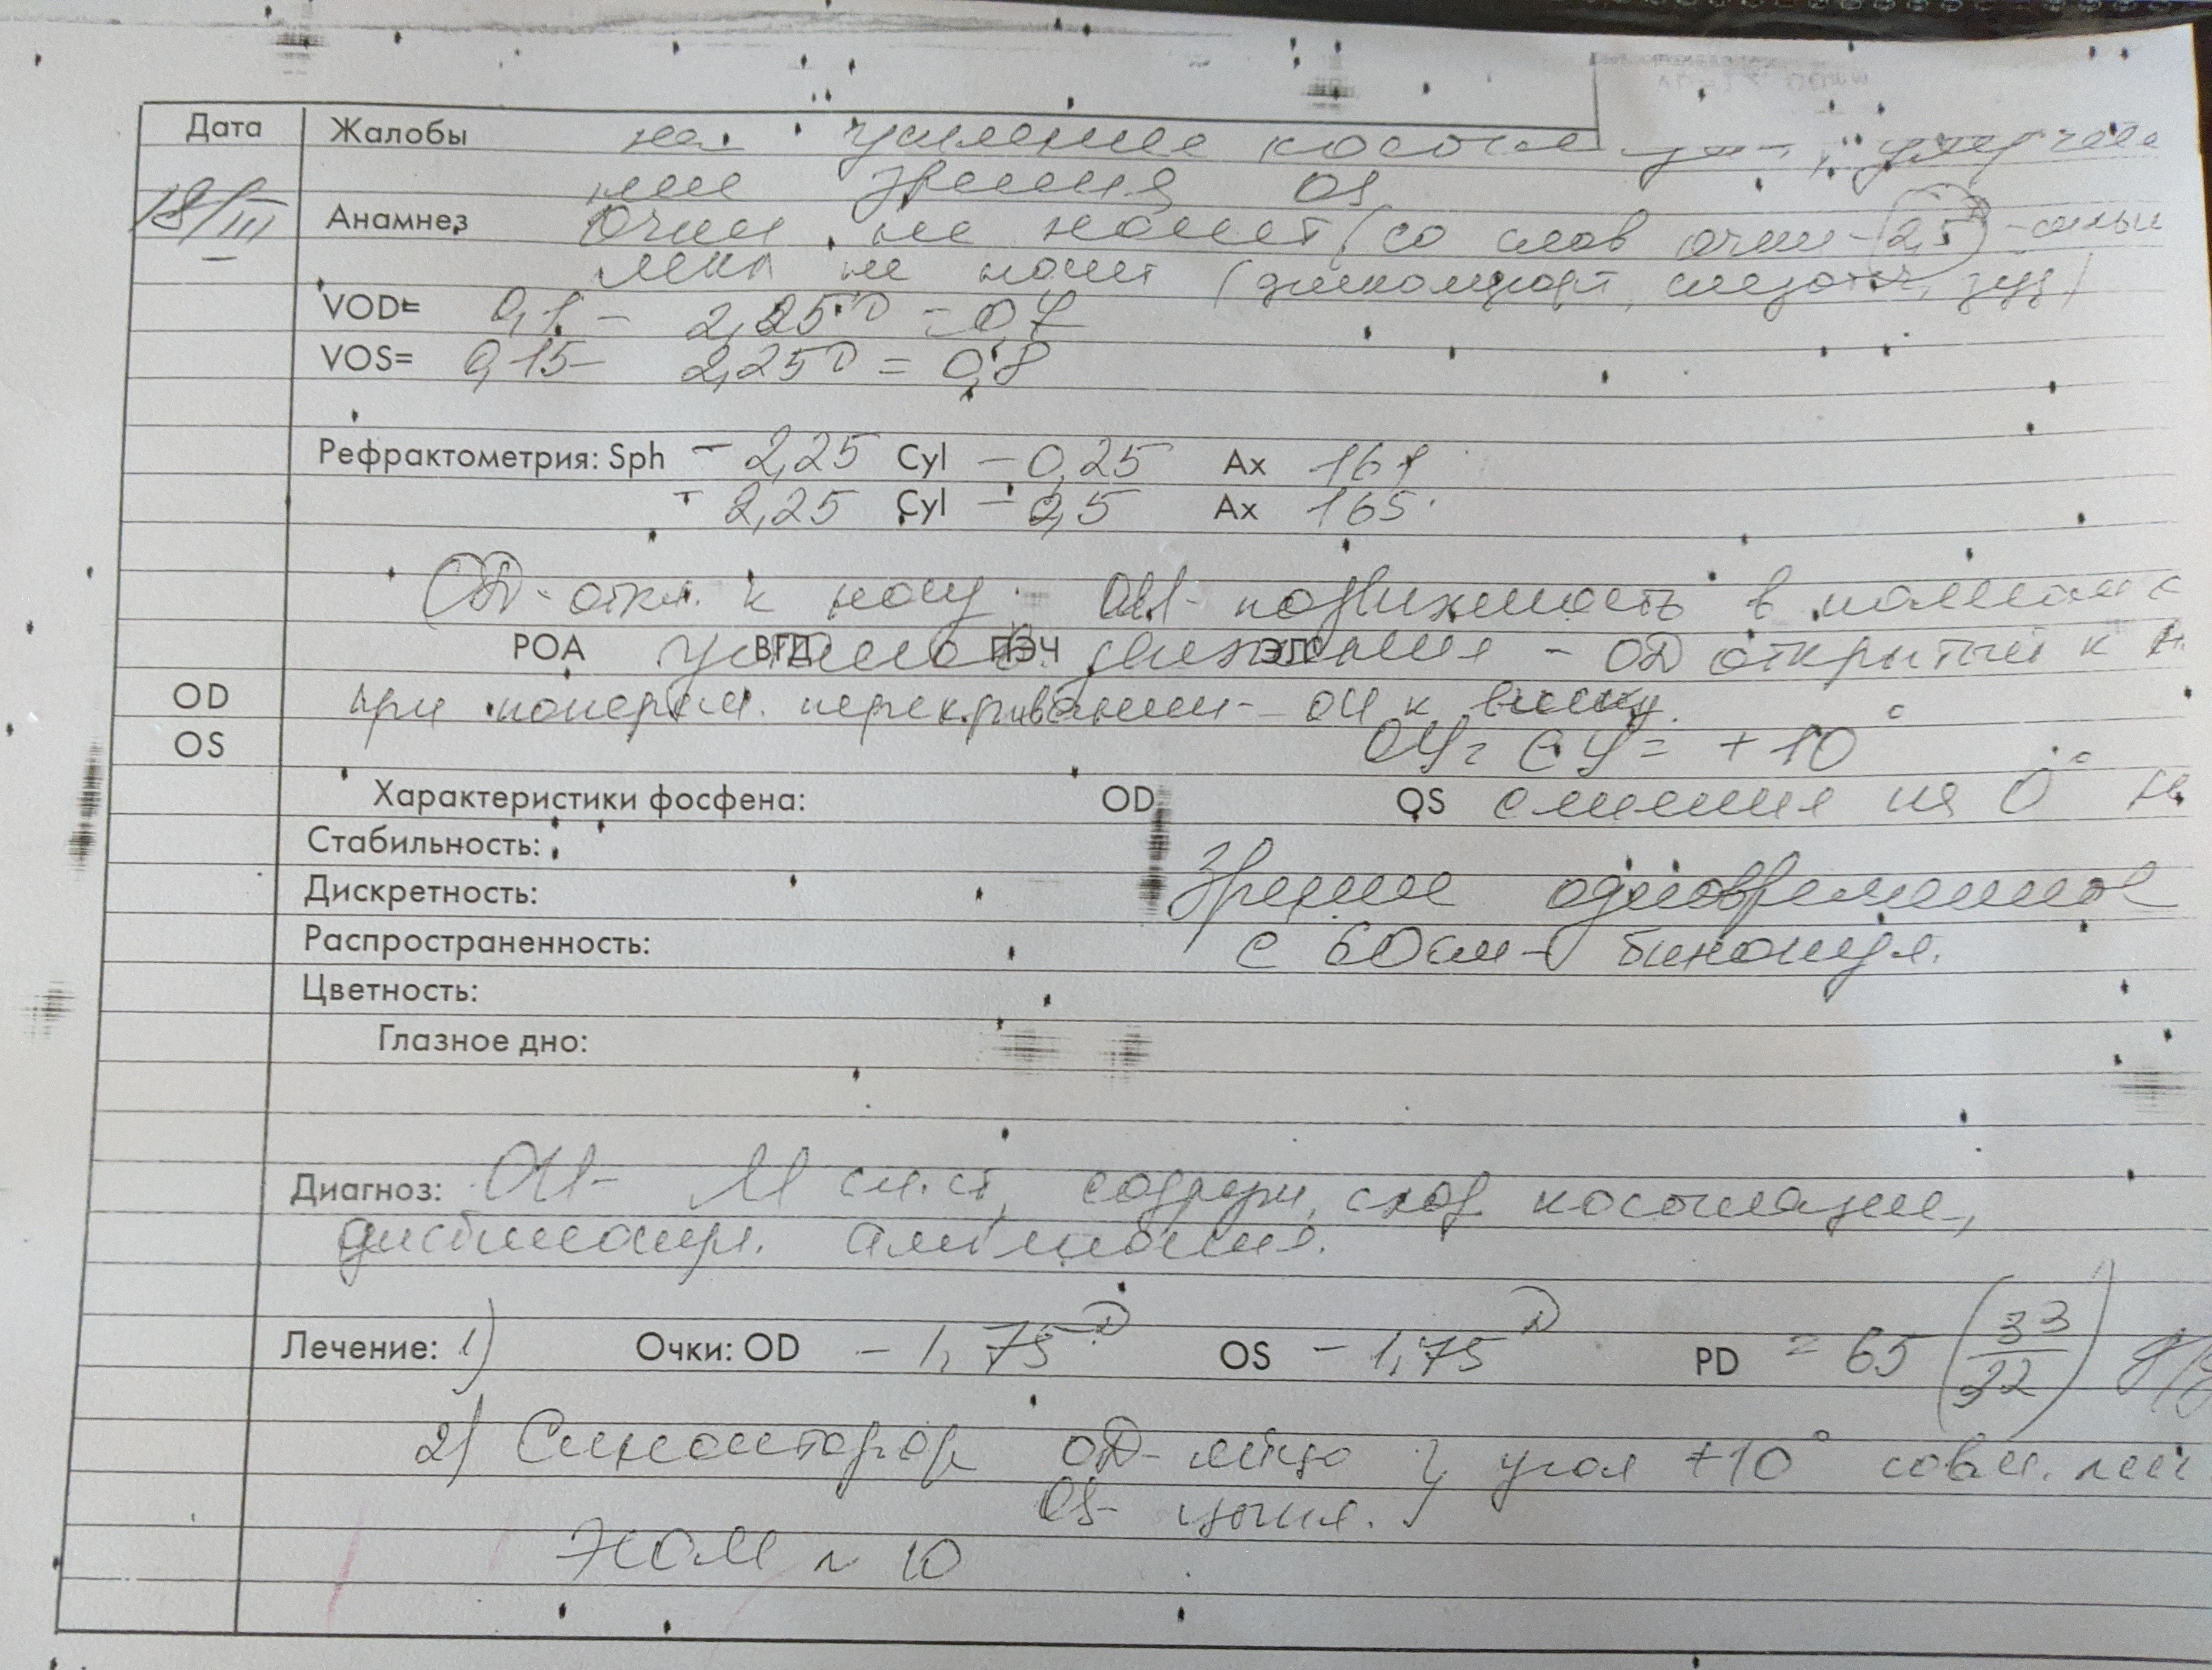 Дата Жалобы на усиление косоглазия, ухудше
ние зрения OS
18/III Анамнез Очки не носит (со слов очки -2,5D - сильн
МКЛ не носит (дискомфорт, слезот., зуд)
VOD= 0,1 - 2,25D = 0,7
VOS= 0,15 - 2,25D = 0,8
Рефрактометрия: Sph - 2,25 Cyl - 0,25 Ax 161
- 2,25 Cyl - 0,5 Ax 165
OD - откл. к носу. OU - подвижность в полном
РОА ВГД ПЭЧ ЭЛС движения - OD открытый к н.
OD при поперем. перекрывании - OU к виску.
OS ОУ = СУ = + 10°
Характеристики фосфена: OD OS 0°
Стабильность:
Дискретность: Зрение одновременное
Распространенность: с 60см - бинокул.
Цветность:
Глазное дно:
Диагноз: OU - М сл.ст, содруж. сход. косоглазие,
дисбинокул. амблиопия.
Лечение: 1) Очки: OD - 1,75D OS - 1,75D PD = 65 (33/32) д/д
2) Синоптофор OD - яйцо } угол +10°
OS - цыпл. }
N 10